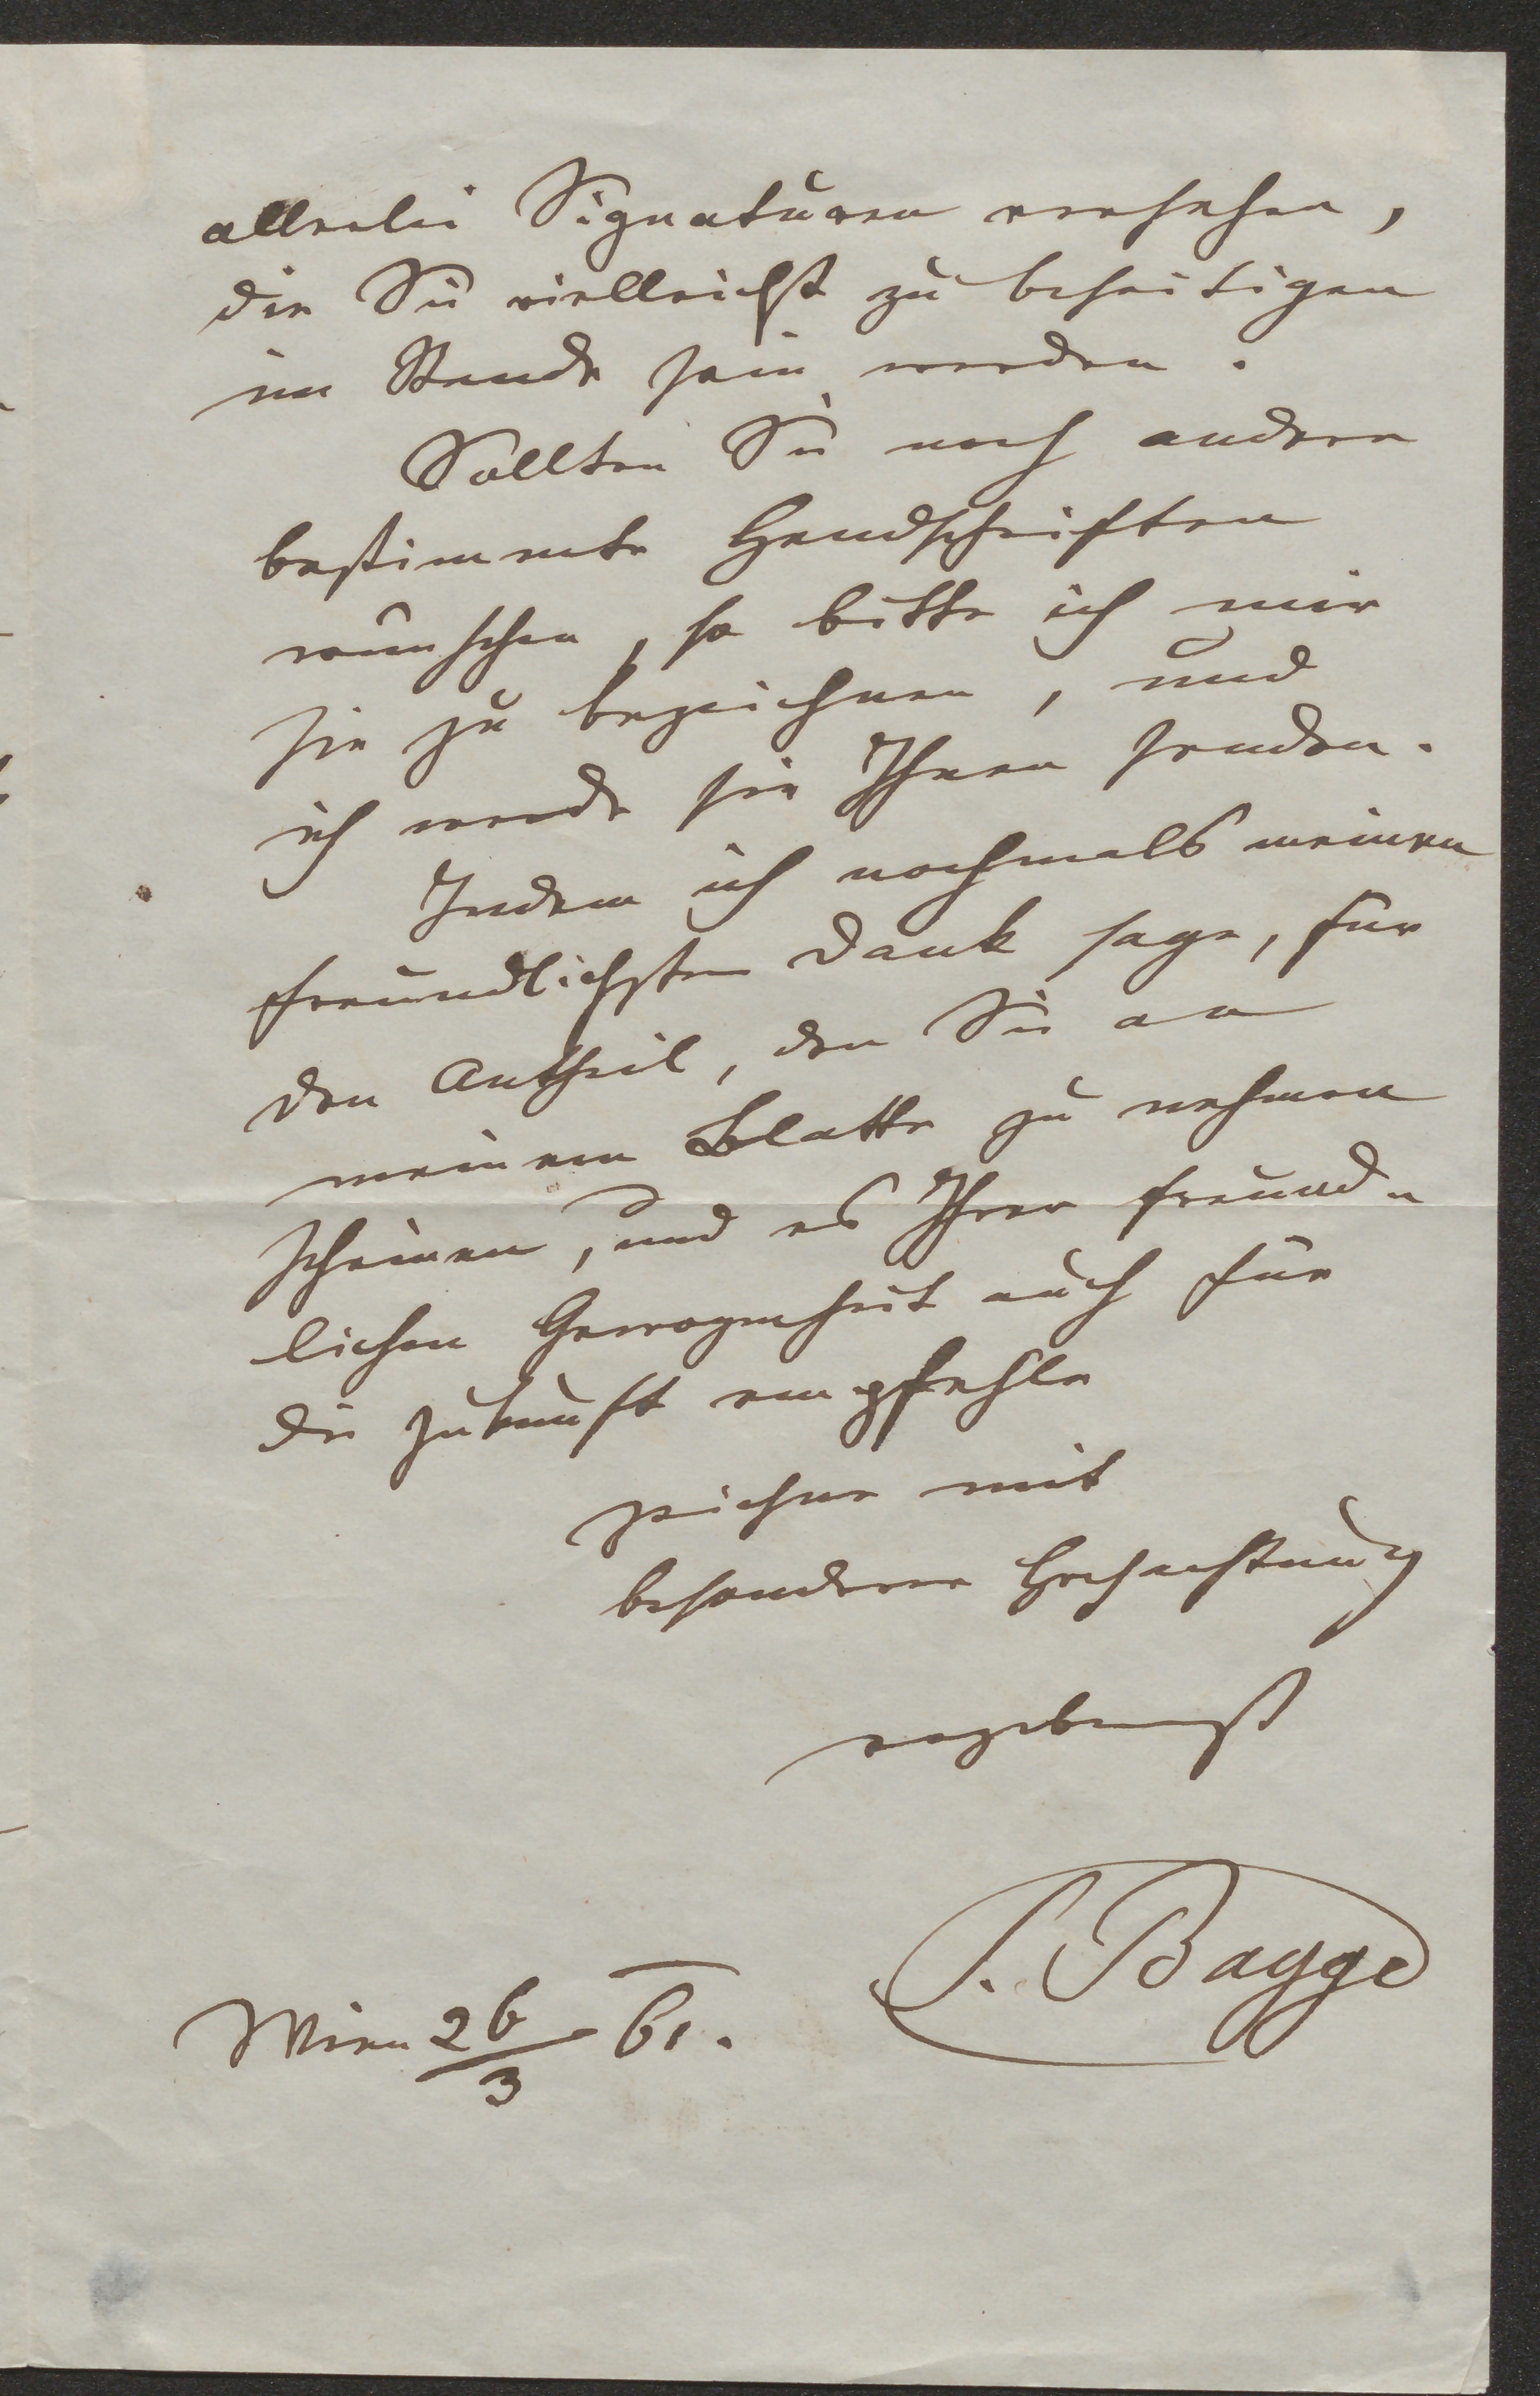 allerlei Signaturen versehen,
die Sie vielleicht zu beseitigen
im Stande sein werden.
Sollten Sie noch andere
bestimmte Handschriften
wünschen, so bitte ich mir
sie zu bezeichnen, und
ich werde sie Ihnen senden.
Indem ich nochmals meinen
freundlichsten Dank sage, für
den Antheil, den Sie an
meinem Blatte zu nehmen
scheinen, und es Ihrer freund-
lichen Gewogenheit auch für
die Zukunft empfehle
zeichne mit
besonderer Hochachtung
ergebenst
S. Bagge
Wien 26/3 61.